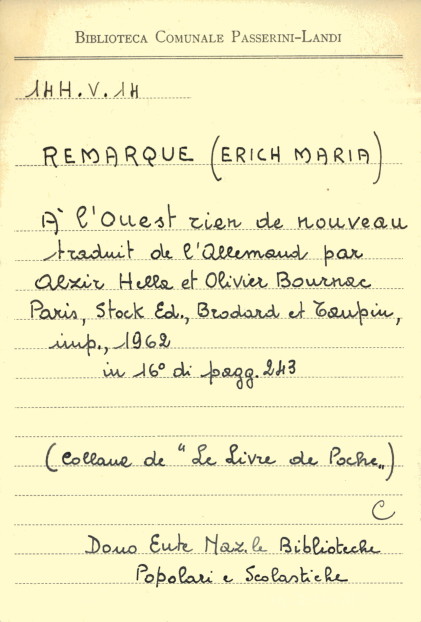 BIBLIOTECA COMUNALE PASSERINI-LANDI
14H.V.14
REMARQUE (ERICH MARIA)
À l'Ouest rien de nouveau
traduit de l'Allemand par
Alzir Hella et Olivier Bournac
Paris, Stock Ed., Brodard et Taupin,
imp., 1962
in 16° di pagg. 243
(Collana de "Le Livre de Poche„)
C
Dono Ente Naz.le Biblioteche
Popolari e Scolastiche